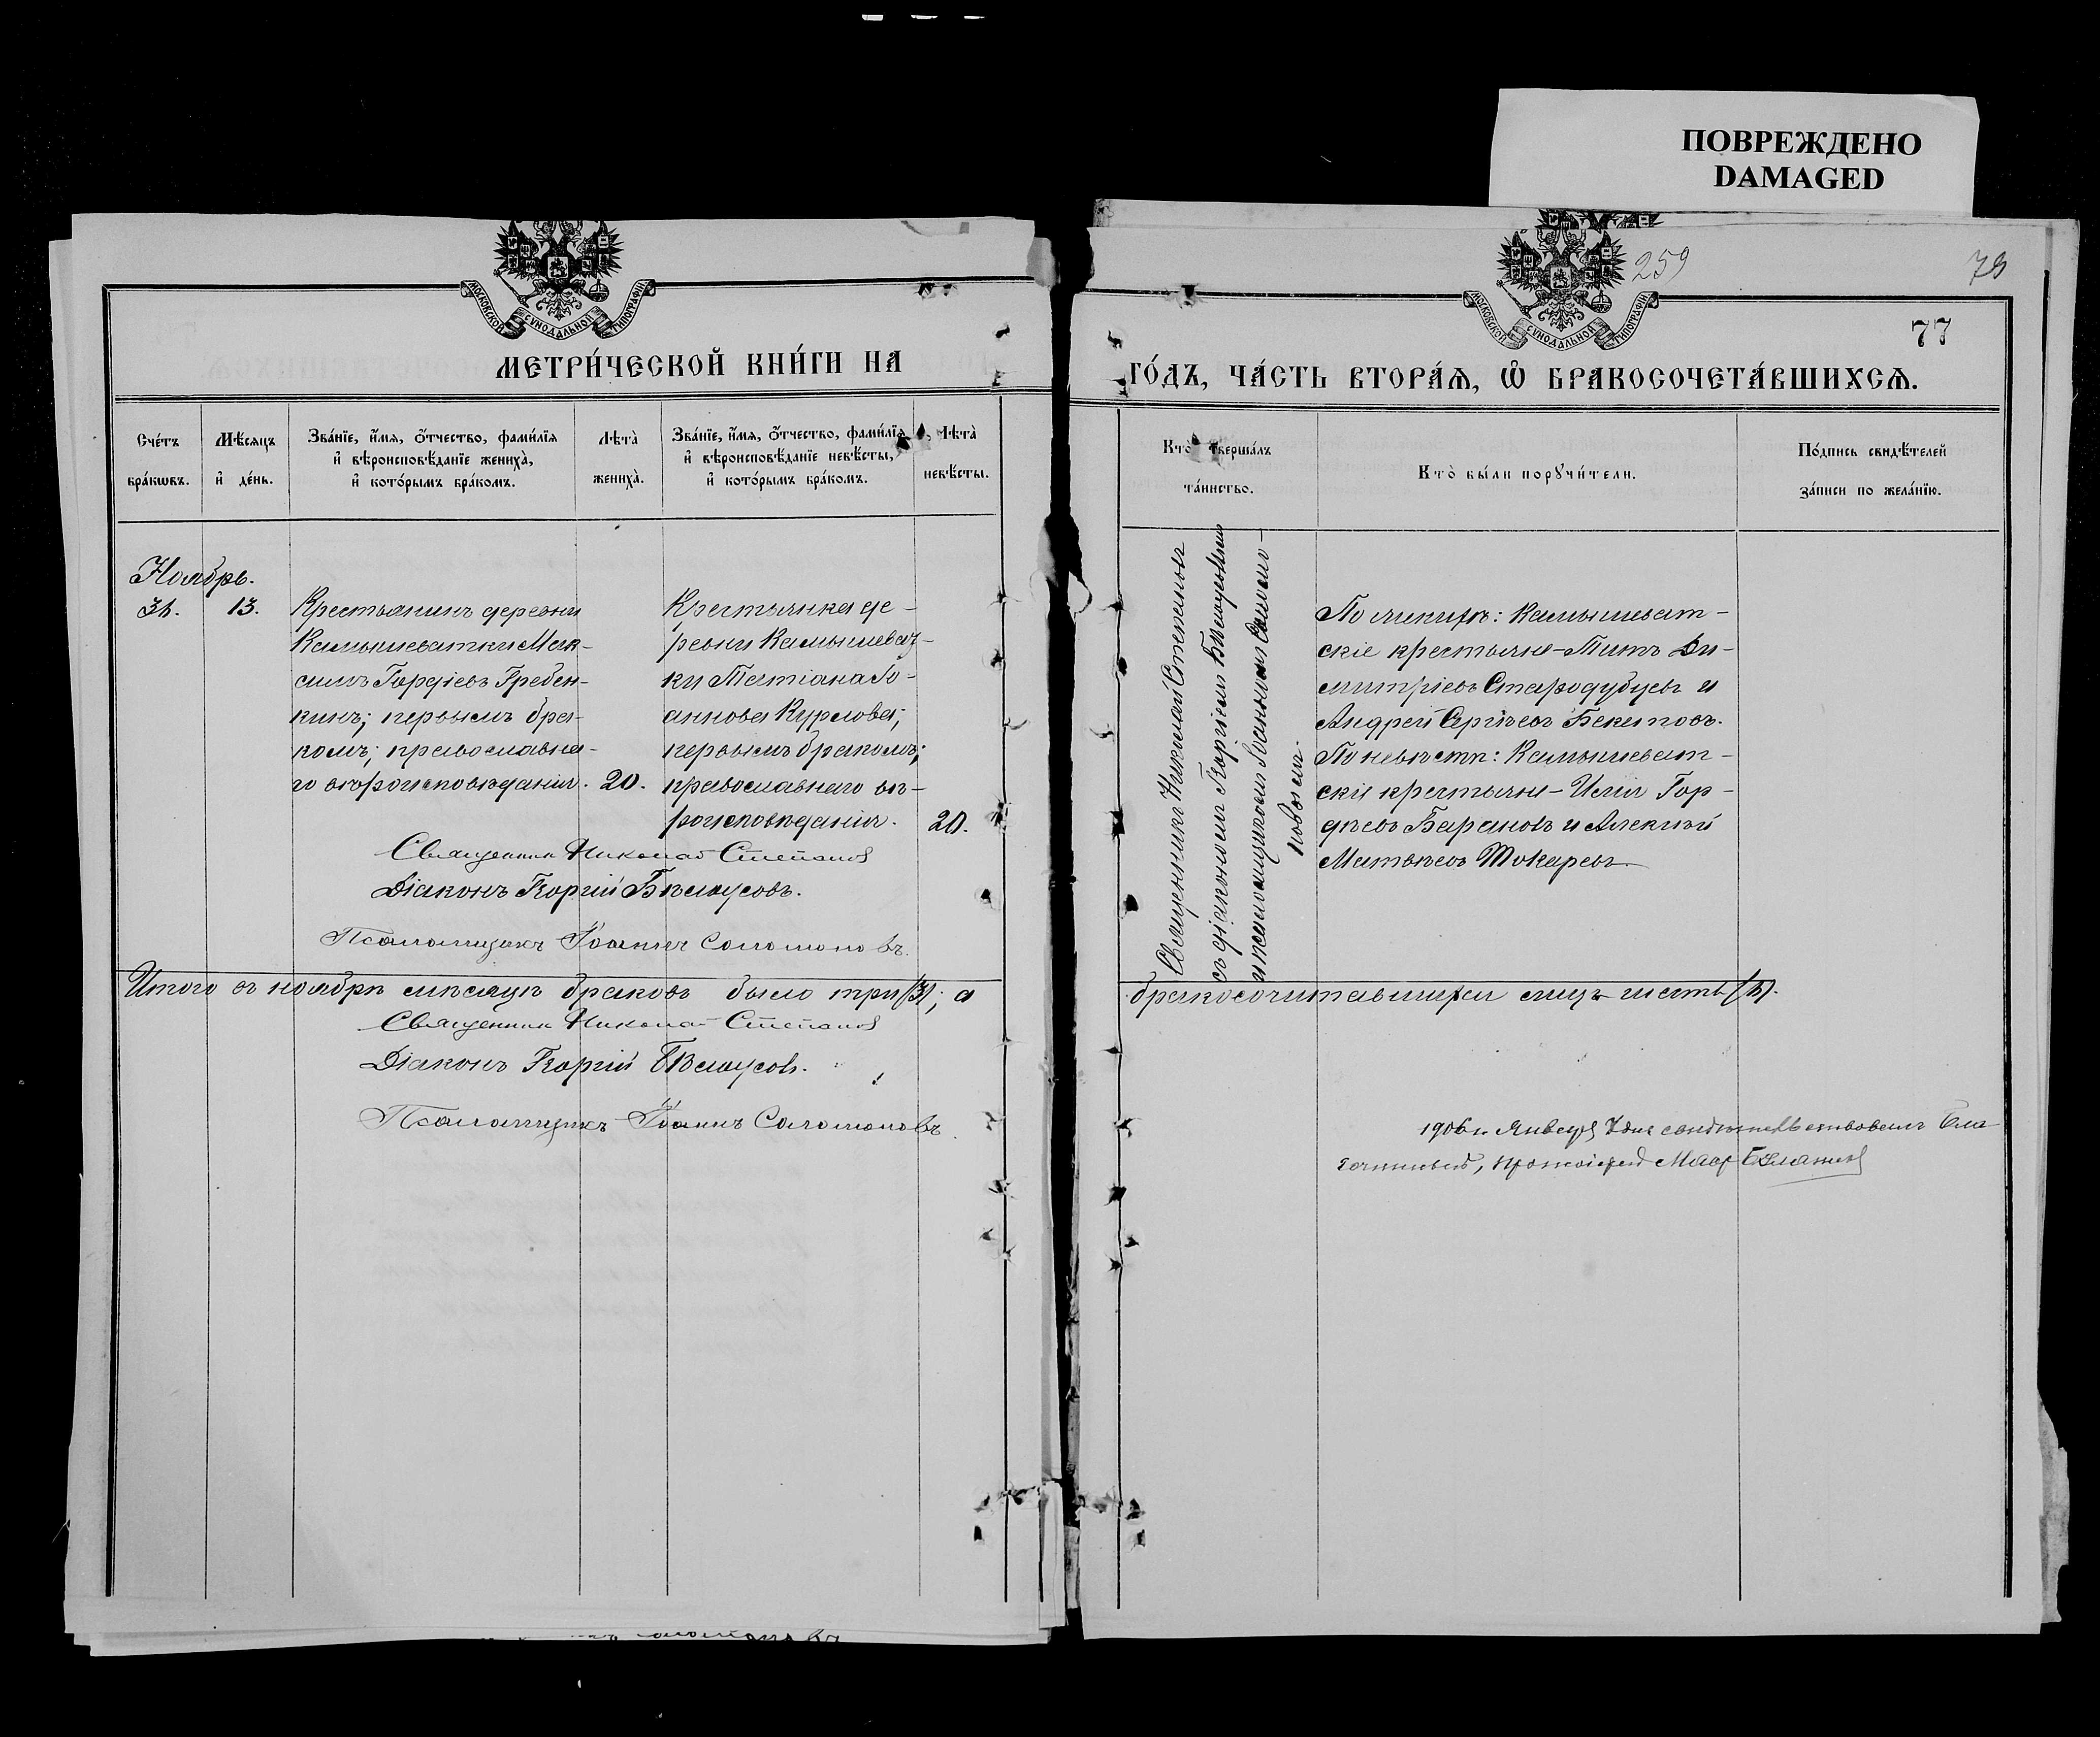 ПОВРЕЖДЕНО
DAMAGED
МОСКОВСКОЙ СѴНОДАЛЬНОЙ ТИПОГРАФІИ
МЕТРИ́ЧЕСКОЙ КНИ́ГИ НА
Сче́тъ бра́кѡвъ.
Мѣ́сяцъ и҆ де́нь.
Зва́нїе, и҆́мя, ѻ҆́тчество, фами́лїя
и҆ вѣроисповѣ́данїе жениха̀,
и҆ кото́рымъ бра́комъ.
Лѣта̀ жениха̀.
Зва́нїе, и҆́мя, ѻ҆́тчество, фами́лїя
и҆ вѣроисповѣ́данїе невѣ́сты,
и҆ кото́рымъ бра́комъ.
Лѣта̀ невѣ́сты.
Ноябрь.
31. 13.
Крестьянинъ деревни
Камышеватки Мак-
симъ Гордіевъ Гребен-
кинъ; первымъ бра-
комъ; православна-
го вѣроисповѣданія. 20.
Крестьянка де-
ревни Камышеват-
ки Татіана Іо-
аннова Курлова;
первымъ бракомъ;
православнаго вѣ-
роисповѣданія. 20.
Священникъ Николай Степановъ
Діаконъ Георгій Бѣлоусовъ.
Псаломщикъ Іоаннъ Соломоновъ.
Итого въ ноябрѣ мѣсяцѣ браковъ было три (3); а
Священникъ Николай Степановъ
Діаконъ Георгій Бѣлоусовъ.
Псаломщикъ Іоаннъ Соломоновъ
259
79
77
МОСКОВСКОЙ СѴНОДАЛЬНОЙ ТИПОГРАФІИ
ГО́ДЪ, ЧА́СТЬ ВТОРА́Ѧ, Ѽ БРАКОСОЧЕТА́ВШИХСѦ.
Кто̀ соверша́лъ
та́инство.
Кто̀ бы́ли порꙋчи́тели.
По́дпись свидѣ́телей
за́писи по жела́нїю.
Священникъ Николай Степановъ
съ діакономъ Георгіемъ Бѣлоусовымъ
и псаломщикомъ Іоанномъ Соломо-
новымъ.
По женихѣ: Камышеват-
скіе крестьяне - Титъ Ди-
митріевъ Стародубцевъ и
Андрей Сергѣевъ Бекетовъ.
По невѣстѣ: Камышеват-
скіе крестьяне - Илія Гор-
дѣевъ Барановъ и Алексѣй
Матвѣевъ Токаревъ.
бракосочетавшихся лицъ шесть (6).
1906 г. Января дня свидѣтельствовалъ Бла-
гочинный, протоіерей